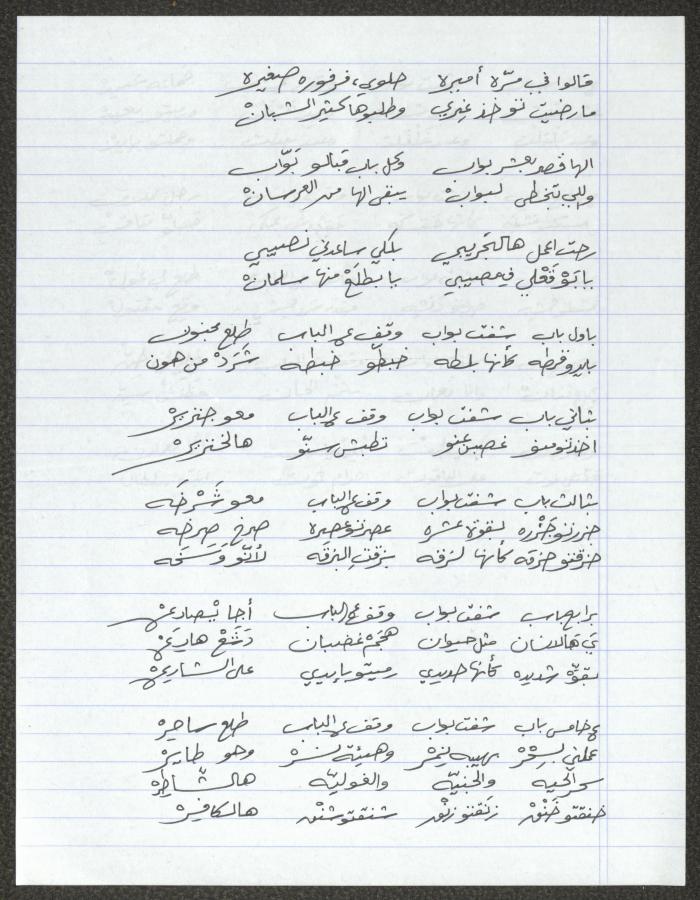 قالوا في مرّه أميره حلوي، فرفوره صغيره
ما رضيت توخذ غيري وطلبوها كتير الشبان
الها قصر بعشر بواب وكل باب قبالو بوّاب
واللي بتخطى لبوابة يبقى الها من العرسان
رحت اعمل هالتجريبي بلكي ساعدني نصيبي
يا بتوقعلي في مصيبي يا بطلع منها سلمان
باول باب شفت بواب وقف ع الباب طلع مجنون
بايدو فرطه كأنها بلطه خبطو خبطه شرد من هون
بثاني باب شفت بواب وقف ع الباب معو جنزير
اخدتو منو غصبن عنو تطبش سنّو هالخنزير
بثالث باب شفت بواب وقف ع الباب معو شرخه
جزرتو جزره بقوة عشره عصرتو عصره صرخ صرخه
حزقتو حزقه كأنها لزقه بزقت البزقه لأنّو وسخه
برابع باب شفت بواب وقف ع الباب أجا يصارع
ني هالانسان مثل حيوان هجم غضبان
بقوّه شديده كأنها حديدي رميتو بإيدي على الشارع
ع خامس باب شفت بواب وقف ع الباب طلع ساحر
عملي بسحر وهيئة نسر وهو طاير
سحر الحيه والجنيّه والغوليّه هالشاطر
خنقتو خنق زنقتو زنق شنقتو شنق هالكافر